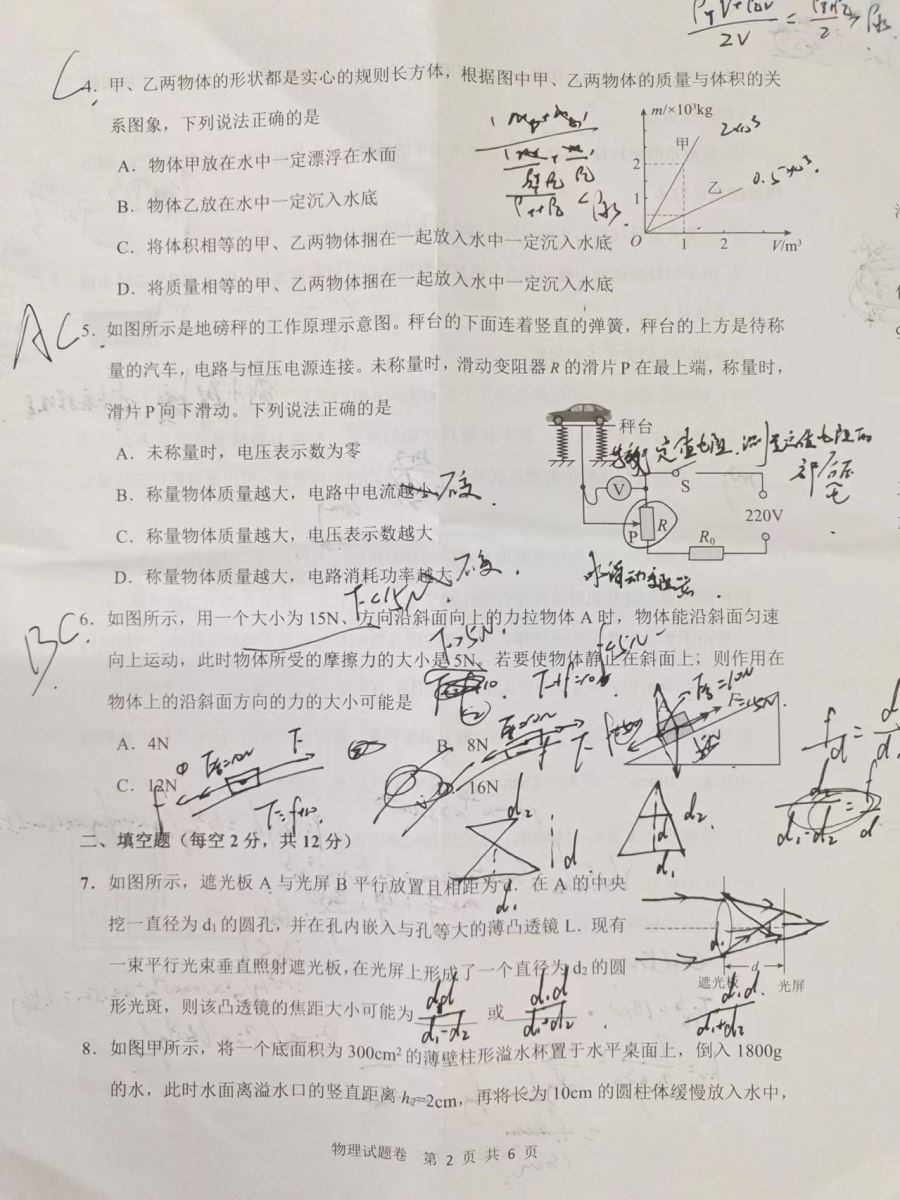 C
4. 甲、乙两物体的形状都是实心的规则长方体，根据图中甲、乙两物体的质量与体积的关
系图象，下列说法正确的是
A．物体甲放在水中一定漂浮在水面
B．物体乙放在水中一定沉入水底
C．将体积相等的甲、乙两物体捆在一起放入水中一定沉入水底
D．将质量相等的甲、乙两物体捆在一起放入水中一定沉入水底
m/×10³kg
甲
2
乙
1
O
1
2
V/m³
2×10³
0.5×10³
AC
5. 如图所示是地磅秤的工作原理示意图。秤台的下面连着竖直的弹簧，秤台的上方是待称
量的汽车，电路与恒压电源连接。未称量时，滑动变阻器 R 的滑片 P 在最上端，称量时，
滑片 P 向下滑动。下列说法正确的是
A．未称量时，电压表示数为零
B．称量物体质量越大，电路中电流越小 不变
C．称量物体质量越大，电压表示数越大
D．称量物体质量越大，电路消耗功率越大 不变
秤台
V
S
220V
P
R
R₀
定值电阻
BC
6. 如图所示，用一个大小为 15N、方向沿斜面向上的力拉物体 A 时，物体能沿斜面匀速
向上运动，此时物体所受的摩擦力的大小是 5N。若要使物体静止在斜面上；则作用在
物体上的沿斜面方向的力的大小可能是
A．4N
B．8N
C．12N
D．16N
F<15N
F>5N
F=15N
A
5N
F=f+10
二、填空题（每空 2 分，共 12 分）
7. 如图所示，遮光板 A 与光屏 B 平行放置且相距为 d．在 A 的中央
挖一直径为 d₁ 的圆孔，并在孔内嵌入与孔等大的薄凸透镜 L．现有
一束平行光束垂直照射遮光板，在光屏上形成了一个直径为 d₂ 的圆
形光斑，则该凸透镜的焦距大小可能为 d₁d/(d₁-d₂) 或 d₁d/(d₁+d₂) 。
d₂
d
d₁
d₂
d
d₁
d
遮光板
光屏
d₁d/(d₁+d₂)
8. 如图甲所示，将一个底面积为 300cm² 的薄壁柱形溢水杯置于水平桌面上，倒入 1800g
的水，此时水面离溢水口的竖直距离 h₂=2cm，再将长为 10cm 的圆柱体缓慢放入水中，
物理试题卷 第 2 页 共 6 页